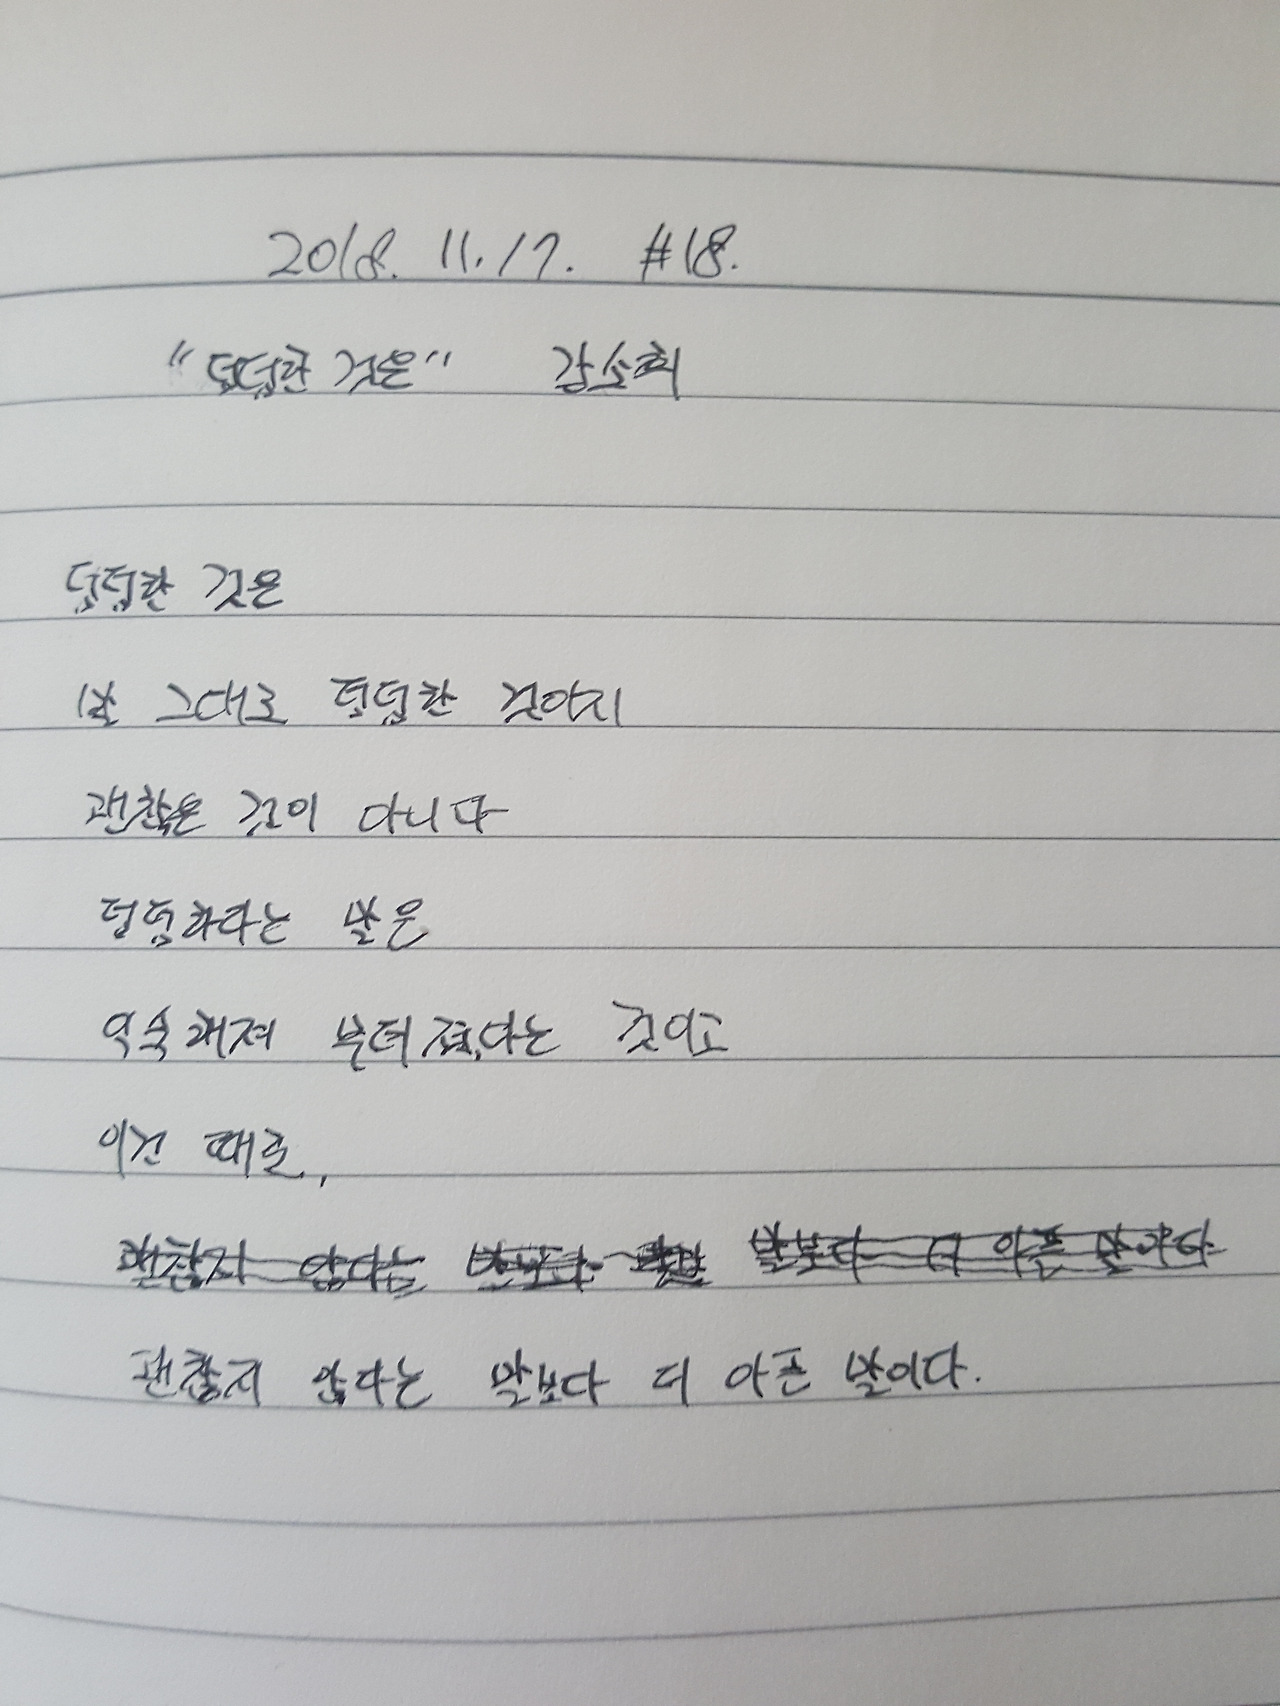 2018. 11. 17. #18.
"덤덤한 것은" 김소희
덤덤한 것은
말 그대로 덤덤한 것이지
괜찮은 것이 아니다
덤덤하다는 말은
익숙해져 무뎌졌다는 것이고
이건 때로,
괜찮지 않다는 말보다 더 아픈 말이다
괜찮지 않다는 말보다 더 아픈 말이다.